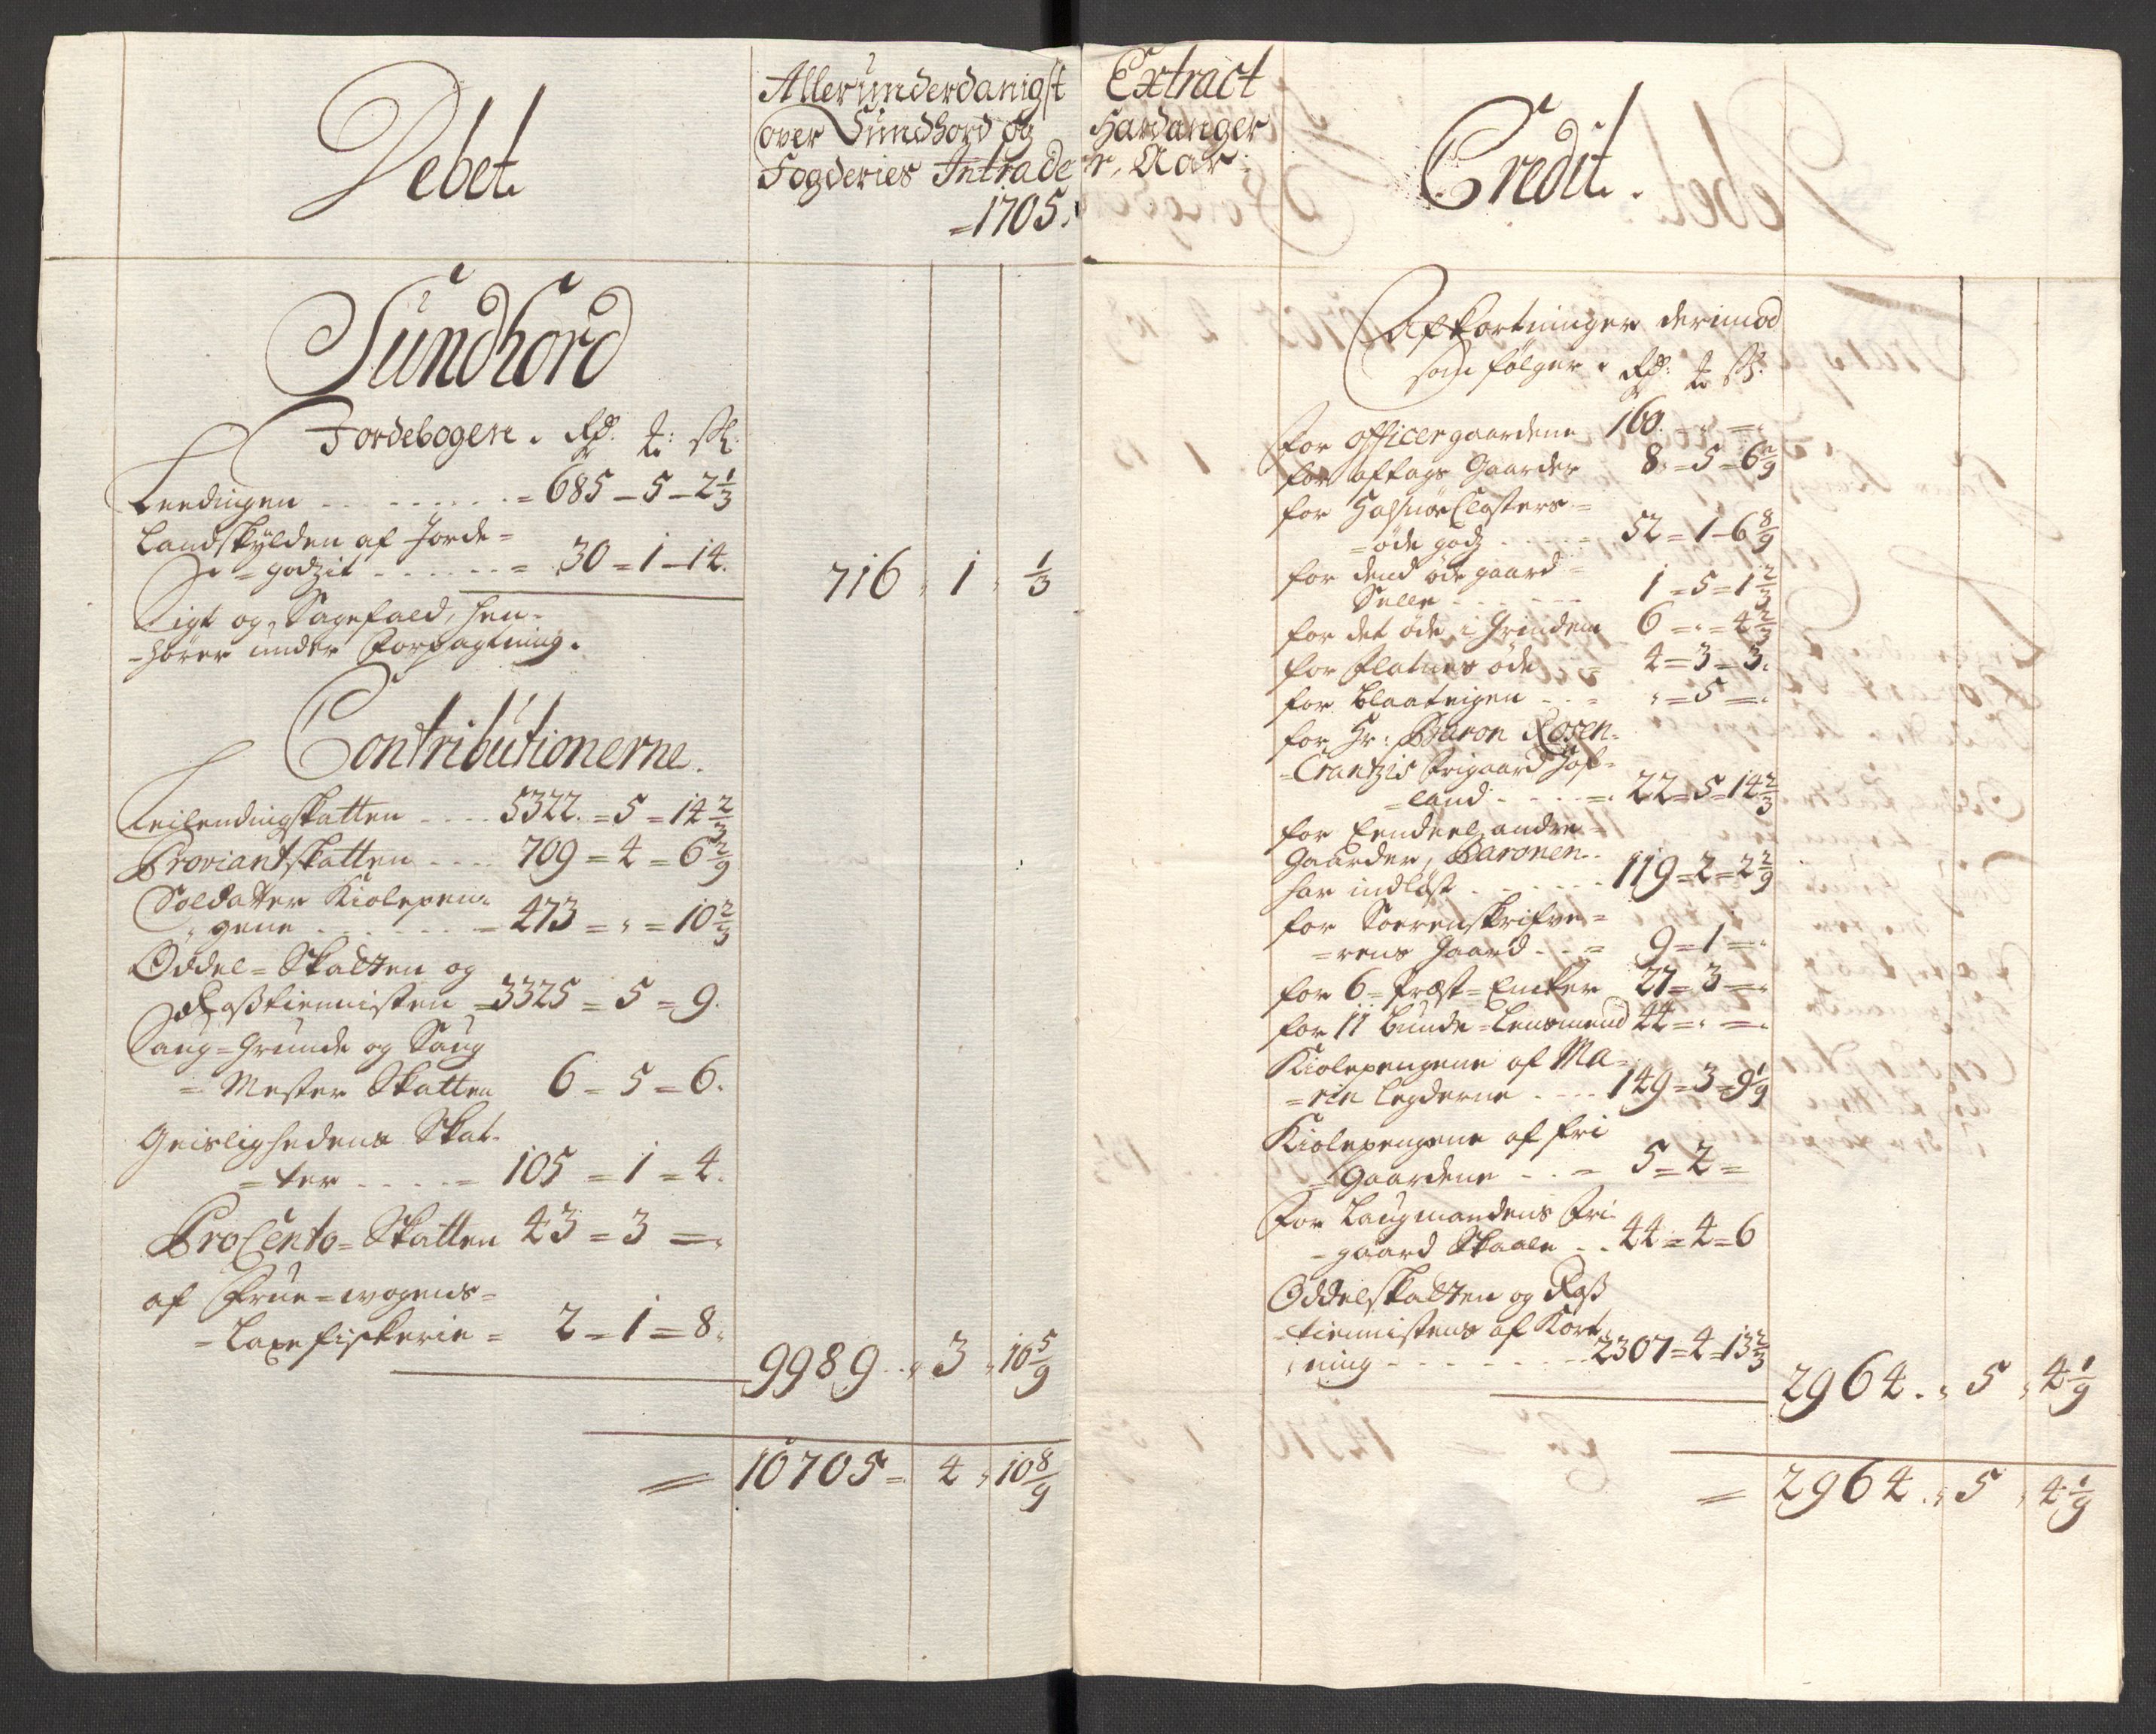 Debet
Allerunderdanigst Extract
over Sundhord og Hardanger
Fogderies Intrader, Aar
=1705.
Sundhord
Jordebogen. Rdr: ʒ: sk:
Leedingen - - - - = 685 - 5 - 2 1/3
Landskylden af Jorde=
= godzit - - - - = 30 = 1 - 14.
716 " 1 " 1/3
Sigt og Sagefald, hen=
=hører under Forpagtning.
Contributionerne.
Leilendingskatten - - - 5322. = 5 = 14 2/3
Proviantskatten - - - 709 = 4 = 6 2/9
Soldatter Kiolepen=
gene - - - - = 473 = " = 10 2/3
Oddel=Skatten og
Rosstiennisten = 3325 = 5 = 9.
Saug=Grunde og Saug
= Mester Skatten 6 = 5 = 6.
Geislighedens Skat=
= ter - - - - = 105 = 1 = 4.
ProCento=Skatten 43 = 3 = "
af Frue=wogens=
= Laxefiskerie = 2 = 1 = 8.
9989 " 3 " 10 5/9
= 10705 = 4 " 10 8/9
Credit.
Afkortninger derimod
som følger. Rdr: ʒ: sk:
For officergaardene 160. = " = "
for aftags Gaarder 8. = 5 = 6 2/9
for Halsnøe Closters=
=øde godz - - - = 52 = 1 - 6 8/9
for dend øde gaard=
Selle - - - - 1 = 5 = 1 2/3
for det øde i Grindem 6 = " = 4 2/3
for Flatnes øde - = 4 = 3 = 3.
for Blaateigen - - = " = 5 = "
for Hr: Baron Rosen=
=Crantzis Frigaard Hof=
=land - - - = 22 = 5 = 14 2/3
for Eendeel andre=
Gaarder, Baronen
har indløst - - - - 119 = 2 = 2 2/9
for Sorenskrifve=
=rens Gaard - - = 9 = 1 = "
for 6=Præst=Encker 27 = 3 = "
for 11 Bunde=Lensmend 44 = " = "
Kiolepengene af Ma=
=rin Legderne - - - 149 = 3 = 9 1/9
Kiolepengene af fri
=Gaardene - - = 5 = 2 =
For Laugmandens Fri=
=gaard Skaale - - 44 = 4 = 6
Oddelskatten og Ross
tiennistens af Kort=
ning - - - - - 2307 = 4 = 13 2/3
2964. " 5 " 4 1/9
= 2964 " 5 " 4 1/9